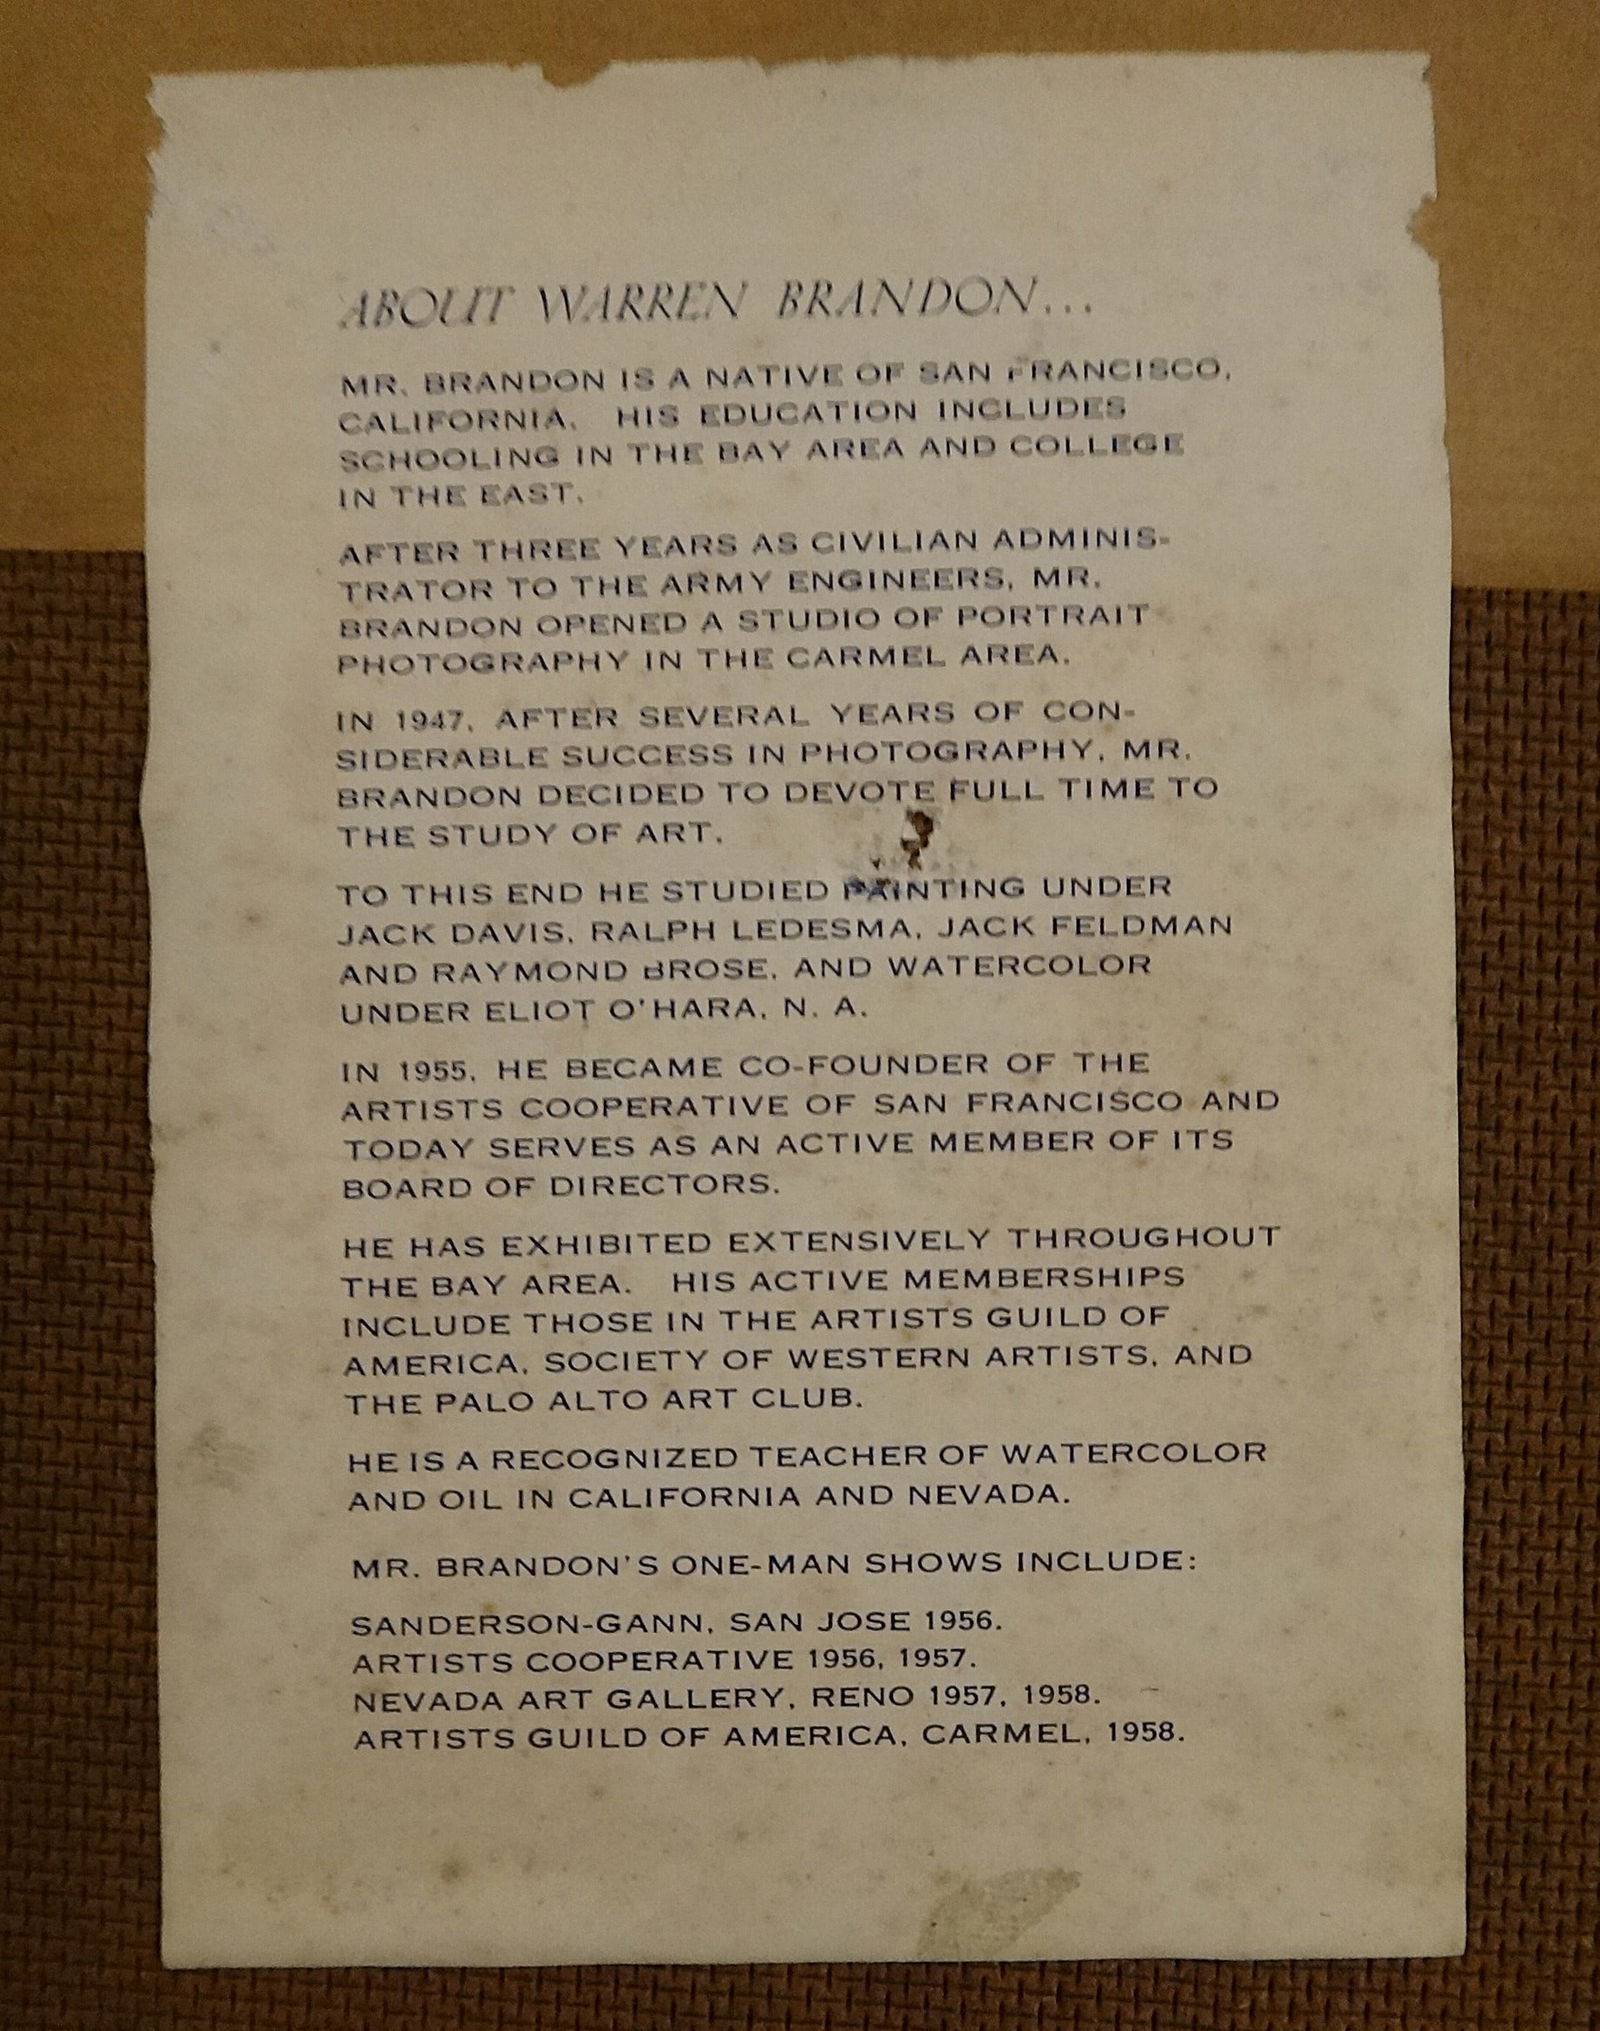 ABOUT WARREN BRANDON...
MR. BRANDON IS A NATIVE OF SAN FRANCISCO,
CALIFORNIA. HIS EDUCATION INCLUDES
SCHOOLING IN THE BAY AREA AND COLLEGE
IN THE EAST.
AFTER THREE YEARS AS CIVILIAN ADMINIS-
TRATOR TO THE ARMY ENGINEERS, MR.
BRANDON OPENED A STUDIO OF PORTRAIT
PHOTOGRAPHY IN THE CARMEL AREA.
IN 1947, AFTER SEVERAL YEARS OF CON-
SIDERABLE SUCCESS IN PHOTOGRAPHY, MR.
BRANDON DECIDED TO DEVOTE FULL TIME TO
THE STUDY OF ART.
TO THIS END HE STUDIED PAINTING UNDER
JACK DAVIS, RALPH LEDESMA, JACK FELDMAN
AND RAYMOND BROSE, AND WATERCOLOR
UNDER ELIOT O'HARA, N. A.
IN 1955, HE BECAME CO-FOUNDER OF THE
ARTISTS COOPERATIVE OF SAN FRANCISCO AND
TODAY SERVES AS AN ACTIVE MEMBER OF ITS
BOARD OF DIRECTORS.
HE HAS EXHIBITED EXTENSIVELY THROUGHOUT
THE BAY AREA. HIS ACTIVE MEMBERSHIPS
INCLUDE THOSE IN THE ARTISTS GUILD OF
AMERICA, SOCIETY OF WESTERN ARTISTS, AND
THE PALO ALTO ART CLUB.
HE IS A RECOGNIZED TEACHER OF WATERCOLOR
AND OIL IN CALIFORNIA AND NEVADA.
MR. BRANDON'S ONE-MAN SHOWS INCLUDE:
SANDERSON-GANN, SAN JOSE 1956.
ARTISTS COOPERATIVE 1956, 1957.
NEVADA ART GALLERY, RENO 1957, 1958.
ARTISTS GUILD OF AMERICA, CARMEL, 1958.